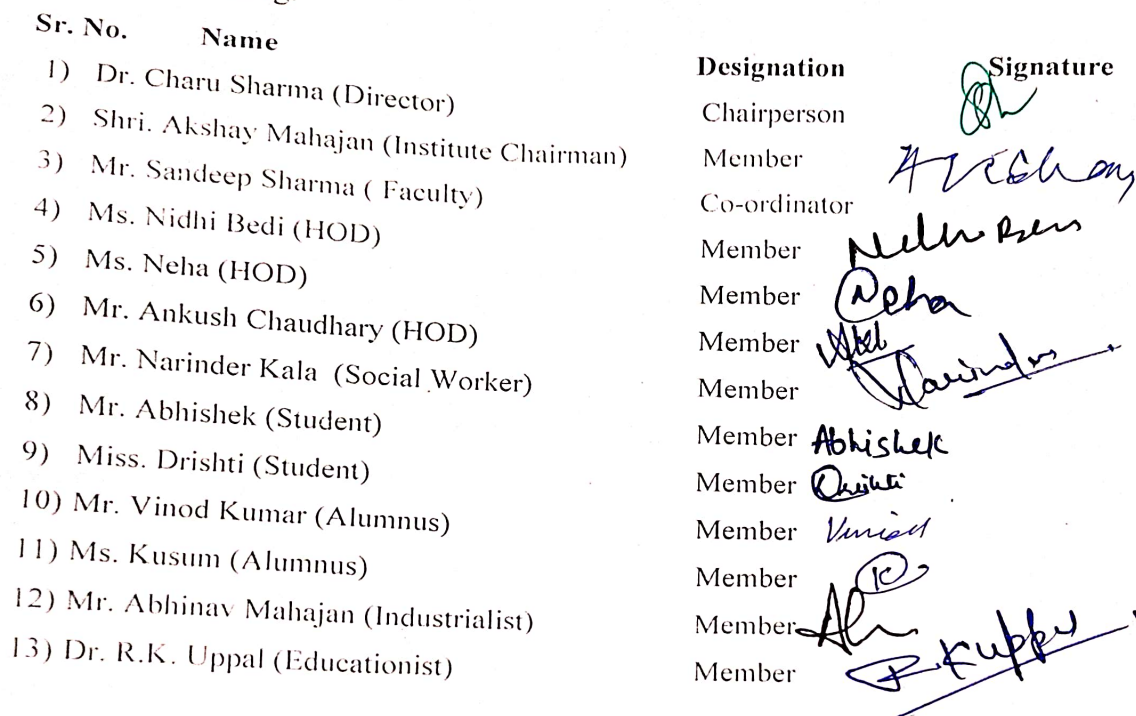 Sr. No. Name Designation Signature
1) Dr. Charu Sharma (Director) Chairperson
2) Shri. Akshay Mahajan (Institute Chairman) Member Akshay
3) Mr. Sandeep Sharma ( Faculty) Co-ordinator
4) Ms. Nidhi Bedi (HOD) Member
5) Ms. Neha (HOD) Member Neha
6) Mr. Ankush Chaudhary (HOD) Member
7) Mr. Narinder Kala (Social Worker) Member Narinder
8) Mr. Abhishek (Student) Member Abhishek
9) Miss. Drishti (Student) Member Drishti
10) Mr. Vinod Kumar (Alumnus) Member
11) Ms. Kusum (Alumnus) Member K
12) Mr. Abhinav Mahajan (Industrialist) Member
13) Dr. R.K. Uppal (Educationist) Member